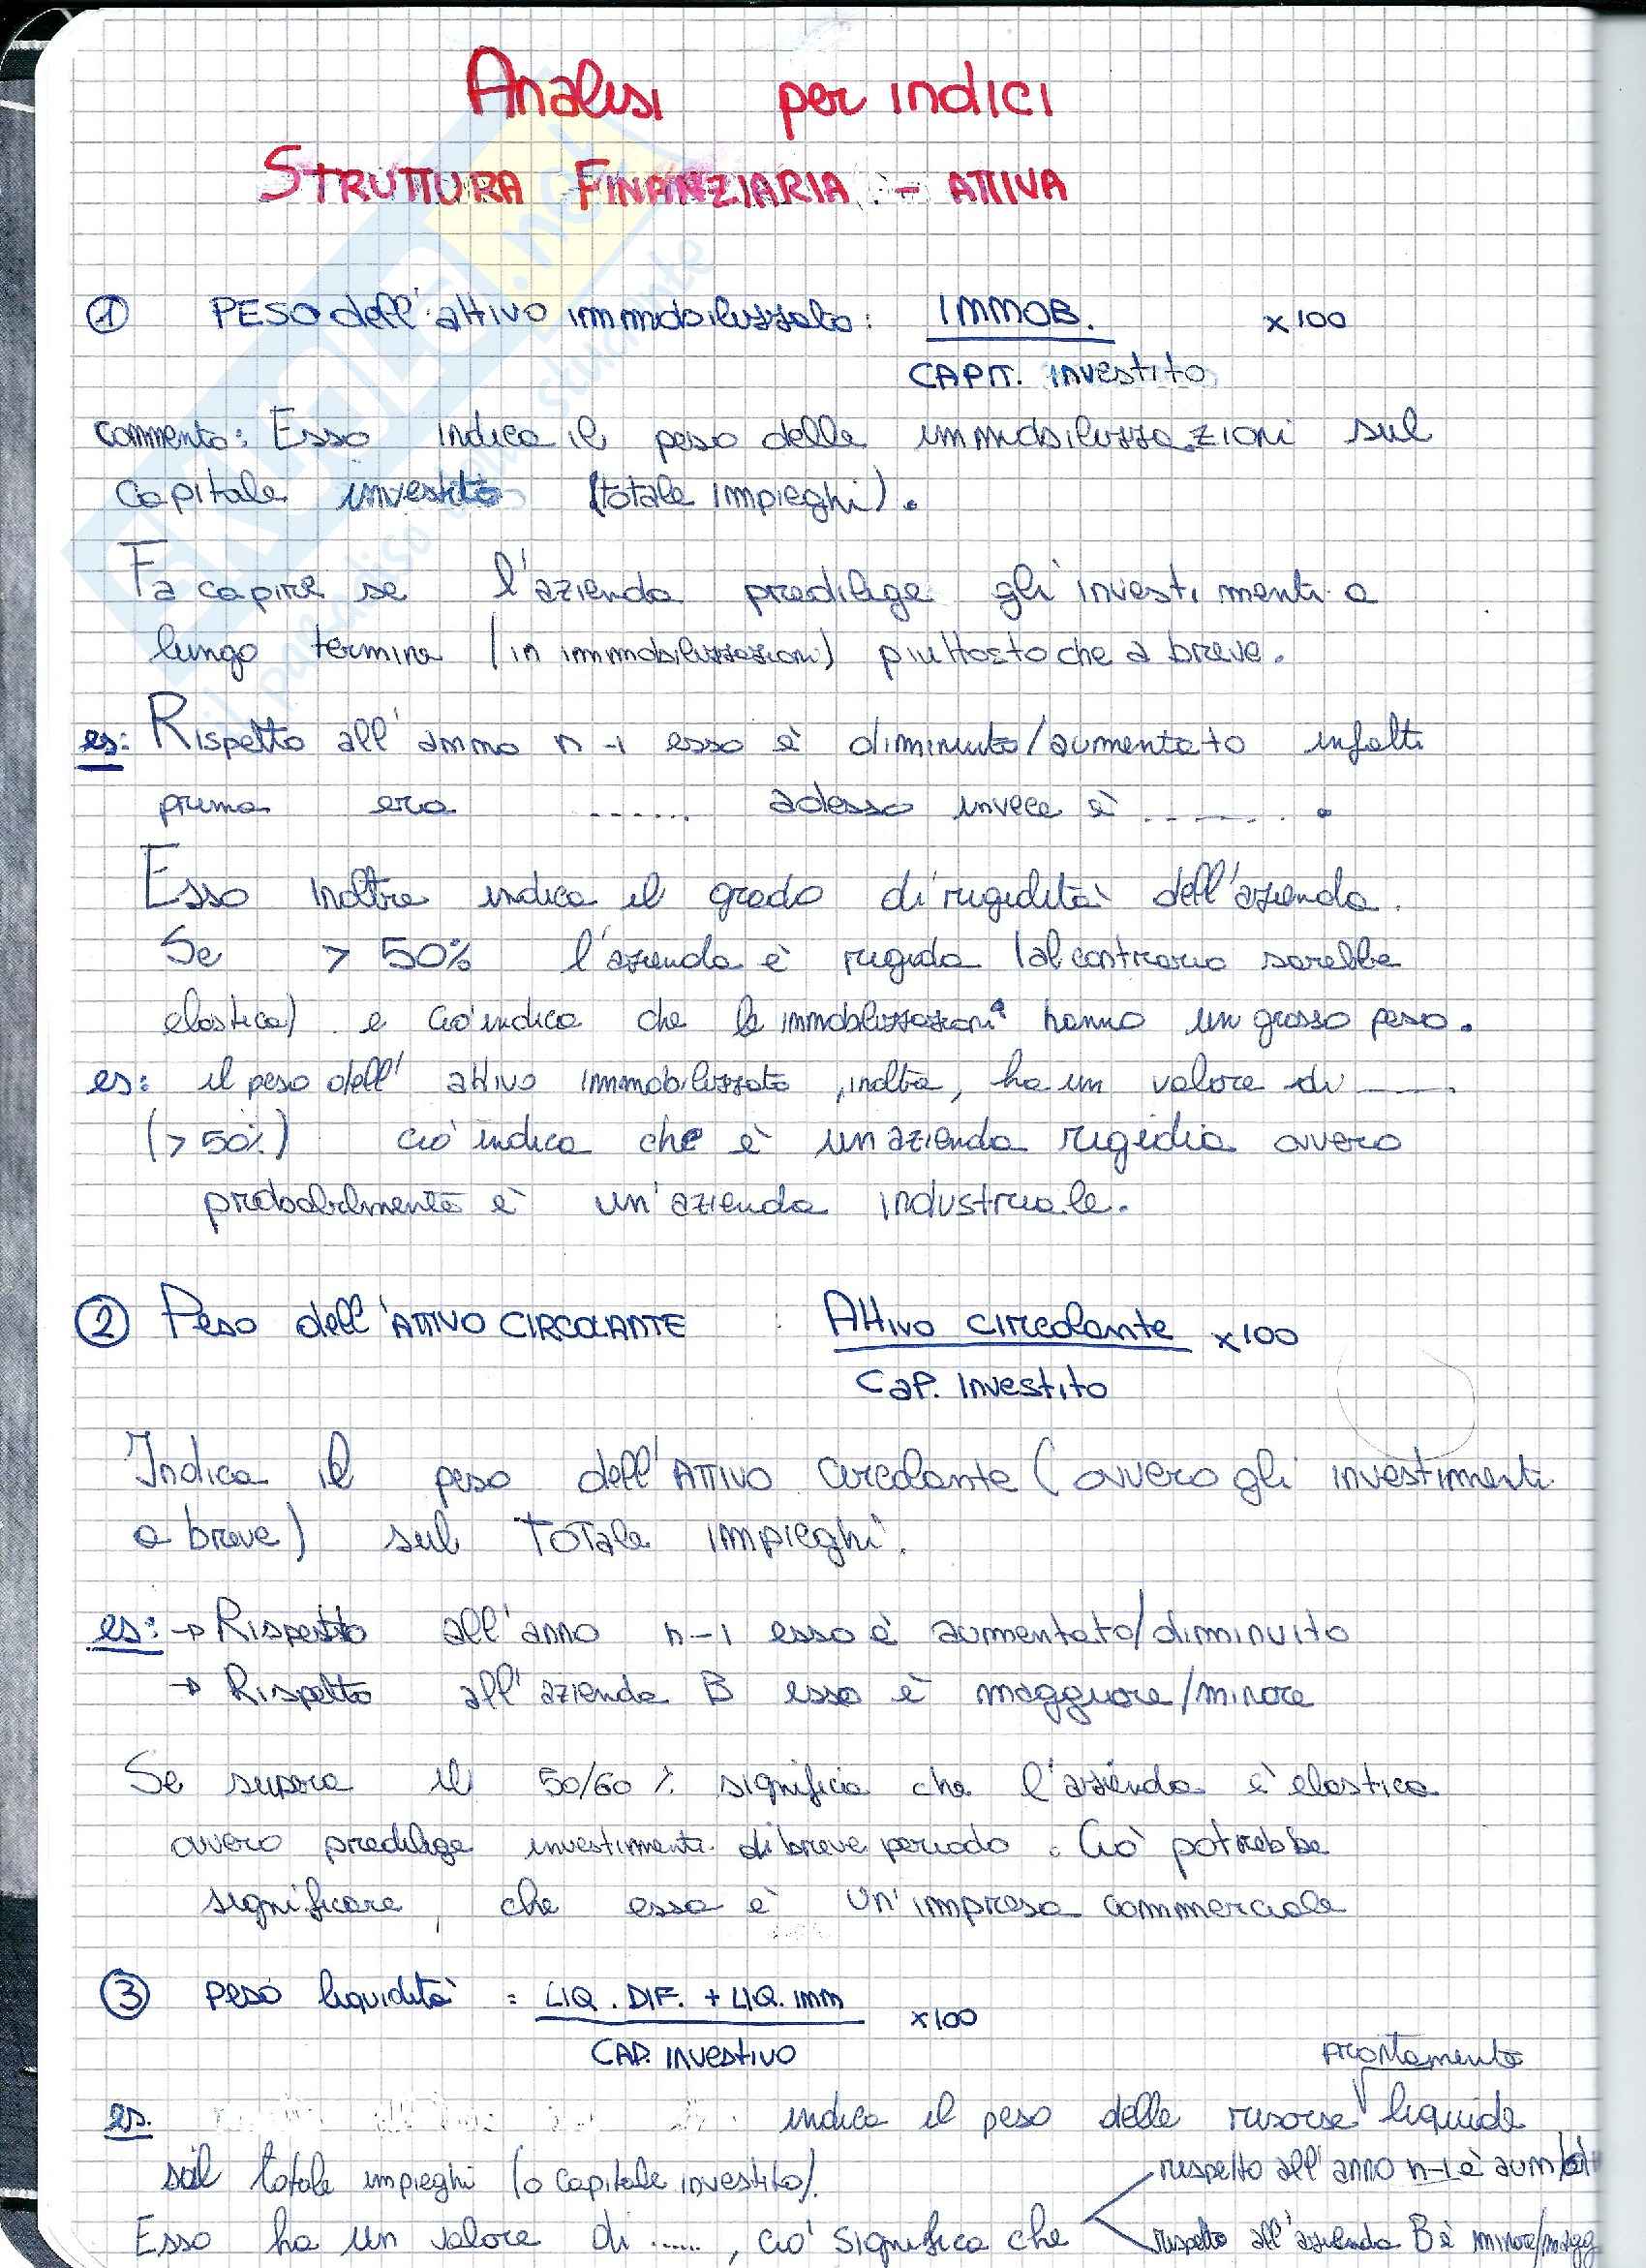 Analisi per indici
STRUTTURA FINANZIARIA - ATTIVA
① PESO dell'attivo immobilizzato: IMMOB. x100
CAPIT. investito
commento: Esso indica il peso delle immobilizzazioni sul
capitale investito (totale impieghi).
Fa capire se l'azienda predilige gli investimenti a
lungo termine (in immobilizzazioni) piuttosto che a breve.
es: Rispetto all'anno n-1 esso è diminuito/aumentato infatti
prima era ...... adesso invece è ........
Esso inoltre indica il grado di rigidità dell'azienda.
Se > 50% l'azienda è rigida (al contrario sarebbe
elastica) e ciò indica che le immobilizzazioni hanno un grosso peso.
es: il peso dell'attivo immobilizzato, inoltre, ha un valore di ____
(>50%) ciò indica che è un azienda rigida ovvero
probabilmente è un'azienda industriale.
② Peso dell'ATTIVO CIRCOLANTE : Attivo circolante x100
Cap. investito
Indica il peso dell'ATTIVO circolante (ovvero gli investimenti
a breve) sul Totale impieghi.
es: → Rispetto all'anno n-1 esso è aumentato/diminuito
→ Rispetto all'azienda B esso è maggiore/minore
Se supera il 50/60 % significa che l'azienda è elastica
ovvero predilige investimenti di breve periodo. Ciò potrebbe
significare, che essa è un'impresa commerciale
③ peso liquidità = LIQ. DIF. + LIQ. imm x100
CAP. INVESTIVO
prontamente
es. indica il peso delle risorse liquide
sul totale impieghi (o capitale investito).
rispetto all'anno n-1 è aum/di
Esso ha un valore di ....., ciò significa che
rispetto all'azienda B è minore/magg
Skuola.net
il paradiso dello studente